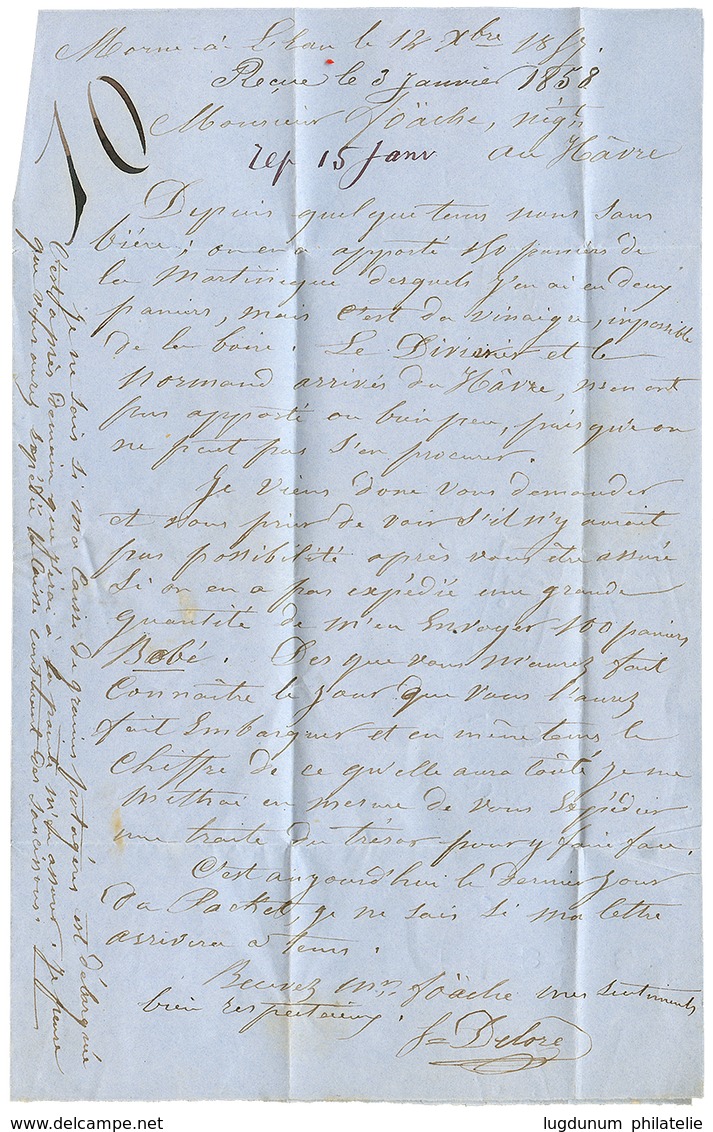 Morne-à-l'Eau le 12 Xbre 1857.
Reçue le 3 Janvier 1858
Monsieur Foäche, négt
rep 15 Janv au Hâvre
10
Depuis quelque tems nous sans
bière ; on en a apporté 150 paniers de
la Martinique desquels j'en ai eu deux
paniers, mais c'est du vinaigre, impossible
de la boire. Le et le
Normand arrivés du Hâvre, n'en ont
pas apporté ou bien peu, puisqu'on
ne peut pas s'en procurer.
Je viens donc vous demander
et vous prier de voir s'il n'y aurait
pas possibilité après vous être assuré
si on en a pas expédié une grande
quantité de m'en Envoyer 100 paniers
Bobé. Dès que vous m'aurez fait
Connaître le jour que vous l'aurez
fait Embarquer et en même tems le
Chiffre de ce qu'elle aura coûté je me
mettrai en mesure de vous Expédier
une traite du trésor pour y faire face.
C'est aujourd'hui le Dernier jour
du Packet, je ne sais si ma lettre
arrivera à tems.
Recevez Mr. Foäche mes sentiments
bien respectueux.
Delore
Je ne sais si ma Caisse de graines potagères est débarquée
C'est après demain que j'irai à la pointe m'en assurer. Je pense
que vous aurez expédié la Caisse contenant des Saucissons.
delcampe.net
lugdunum philatelie